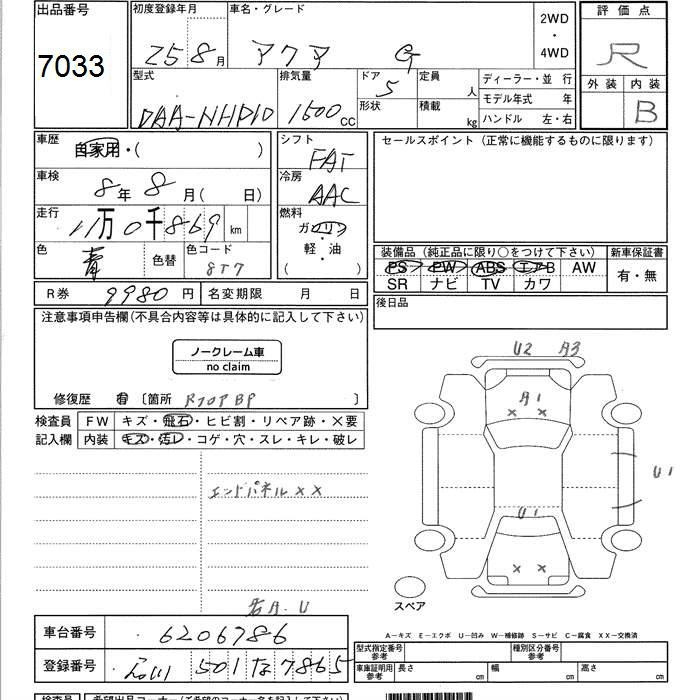 出品番号 初度登録年月 車名・グレード 2WD ・ 4WD 評価点
7033 25 8月 アクア G R
型式 排気量 ドア 定員 人 ディーラー・並 行 外装 内装
DAA-NHP10 1500 CC 5 形状 積載 kg モデル年式 年 B
ハンドル 左・右
車歴 自家用・( ) シフト FAT セールスポイント(正常に機能するものに限ります)
車検 8年 8月( 日) 冷房 AAC
走行 11万0千869 km 燃料 ガソリン ・ 軽・油 ( )
色 青 色替 色コード 8T7 装備品(純正品に限り○をつけて下さい) 新車保証書
PS PW ABS エアB AW 有・無
SR ナビ TV カワ
R券 9980円 名変期限 月 日 後日品
注意事項申告欄(不具合内容等は具体的に記入して下さい)
ノークレーム車
no claim
修復歴 有 〔箇所 RフロアBP 〕
U2 A3
A1
× ×
検査員 FW キズ・飛石・ヒビ割・リペア跡・×要
記入欄 内装 キズ・汚レ・コゲ・穴・スレ・キレ・破レ
エンドパネル××
U1
U1
× ×
スペア
A−キズ E−エクボ U−凹み W−補修跡 S−サビ C−腐食 XX−交換済
車台番号 6206786
型式指定番号 参考 種別区分番号 参考
登録番号 石川 501 な 7865
車庫証明用 参考 長さ cm 幅 cm 高さ cm
検査員 希望出品コーナー(ご希望のコーナー名を記入して下さい)